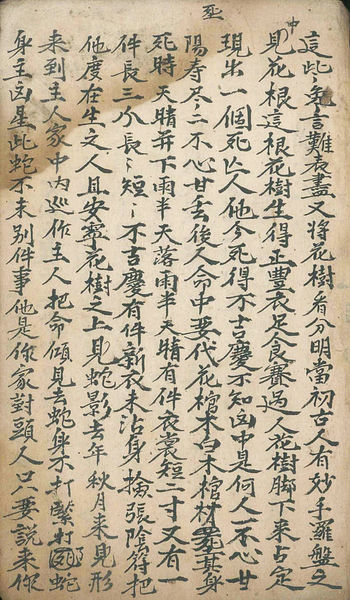 這此冤言難表盡又將花樹看分明當初古人有妙手羅盤之
中
見花根這根花樹生得正豐衣足食良賽過人花樹脚下來占定
現出一個死亡人他今死得不吉慶不知凶中是何人一不心甘
陽寿尽二不心甘丢後人命中要代花棺木白木棺材葬其身
死
死時天晴并下雨半天落雨半天晴有件衣裳短二寸又有一
件長三分長〻短〻不吉慶有件新衣未沾身撿張陰符把
他度在生之人且安寧花樹之上見蛇影去年秋月來見形
來到主人家中内巡作主人把命傾見去蛇身不打緊打死蛇
身主凶星此蛇不未別件事他是你家對頭人只要說来你